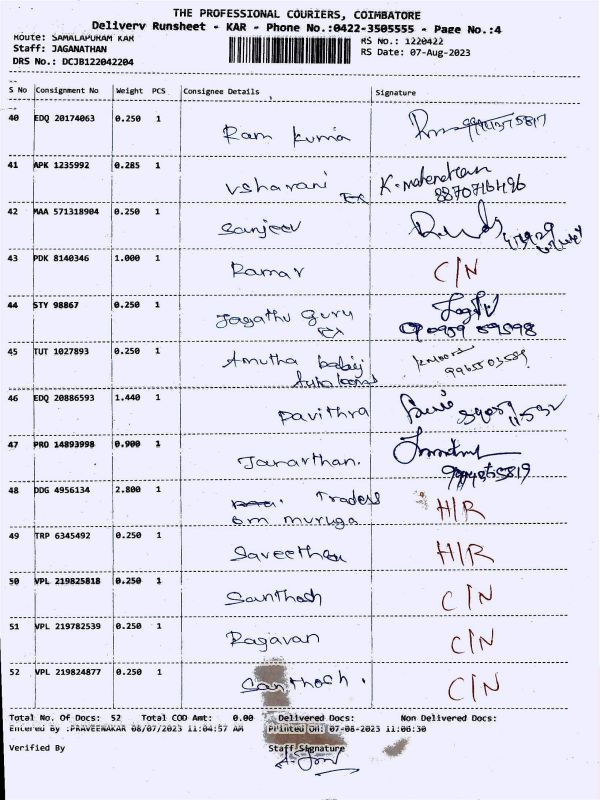 THE PROFESSIONAL COURIERS, COIMBATORE
Delivery Runsheet - KAR - Phone No.:0422-3505555 - Page No.:4
Route: SAMALAPURAM KAR
RS No.: 1220422
Staff: JAGANATHAN
RS Date: 07-Aug-2023
DRS No.: DCJB122042204
S No Consignment No Weight PCS Consignee Details Signature
40 EDQ 20174063 0.250 1 Ram kuma
41 APK 1235992 0.285 1 Vsharani K. mahendran
8870716496
42 MAA 571318904 0.250 1 Sanjeev
43 PDK 8140346 1.000 1 Ramar C/N
44 STY 98867 0.250 1 Jagathu guru
45 TUT 1027893 0.250 1 Amutha
46 EDQ 20886593 1.440 1 Pavithra
47 PRO 14893998 0.900 1 Janarthan.
48 DDG 4956134 2.800 1 Traders H/R
om muruga
49 TRP 6345492 0.250 1 Saveetha H/R
50 VPL 219825818 0.250 1 Santhosh C/N
51 VPL 219782539 0.250 1 Ragavan C/N
52 VPL 219824877 0.250 1 Santhosh. C/N
Total No. Of Docs: 52 Total COD Amt: 0.00 Delivered Docs: Non Delivered Docs:
Entered By :PRAVEENAKAR 08/07/2023 11:04:57 AM Printed On: 07-08-2023 11:06:30
Verified By Staff Signature